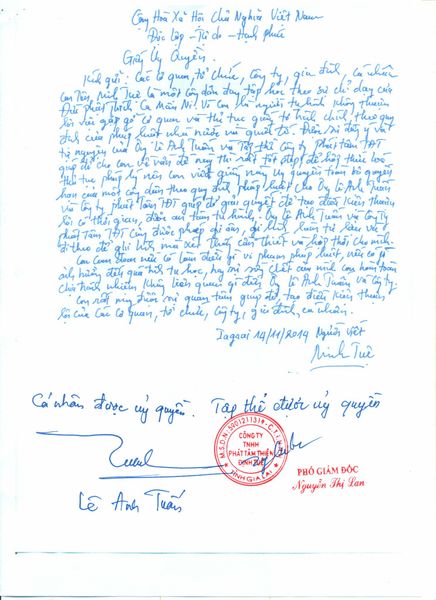 Cộng Hoà Xã Hội Chủ Nghĩa Việt Nam
Độc lập - Tự do - Hạnh phúc
Giấy Ủy Quyền.
Kính gửi: Các cơ quan, tổ chức, Công ty, gia đình, cá nhân
Con Tên, Minh Tuệ là một công dân đang tập học theo sự chỉ dạy của
Đức phật Thích Ca Mâu Ni! Vì Con là người tu hành không thuận
lợi việc gặp gỡ cơ quan và thủ tục giấy tờ hành chính theo quy
định của pháp luật nhà nước và quốc tế.
tự nguyện của Ông Lê Anh Tuấn và Tập thể Công ty Phát tâm TĐT
giúp đỡ cho con về vấn đề này thì rất tốt đẹp để hợp thức hoá
thủ tục pháp lý nên con viết giấy này ủy quyền toàn bộ quyền
hạn của một công dân theo quy định pháp luật cho Ông Lê Anh Tuấn
và Công ty phát tâm TĐT giúp đỡ giải quyết để tạo điều kiện thuận
lợi có thời gian, được an tâm tu hành. Ông Lê Anh Tuấn và Công ty
phát tâm TĐT cũng được phép đi
đi theo để ghi hình mà xét thấy cần thiết và hợp thời cho mình
Con Cam đoan nếu có làm điều gì vi phạm pháp luật,
ảnh hưởng đến quá trình tự học, hay sự sống chết của mình con hoàn toàn
chịu trách nhiệm không liên quan gì đến Ông Lê Anh Tuấn và Công ty.
Con rất mong được sự quan tâm giúp đỡ, tạo điều kiện thuận
lợi của Các Cơ quan, tổ chức, Công ty, gia đình, cá nhân.
14/11/2014 Người Viết
Minh Tuệ
Cá nhân được ủy quyền. Tập thể được ủy quyền
M.S.D.N: 5901211319-C.T.
CÔNG TY
TNHH
PHÁT TÂM THIÊN
ĐÌNH TUỆ
TỈNH GIA LAI
PHÓ GIÁM ĐỐC
Nguyễn Thị Lan
Lê Anh Tuấn